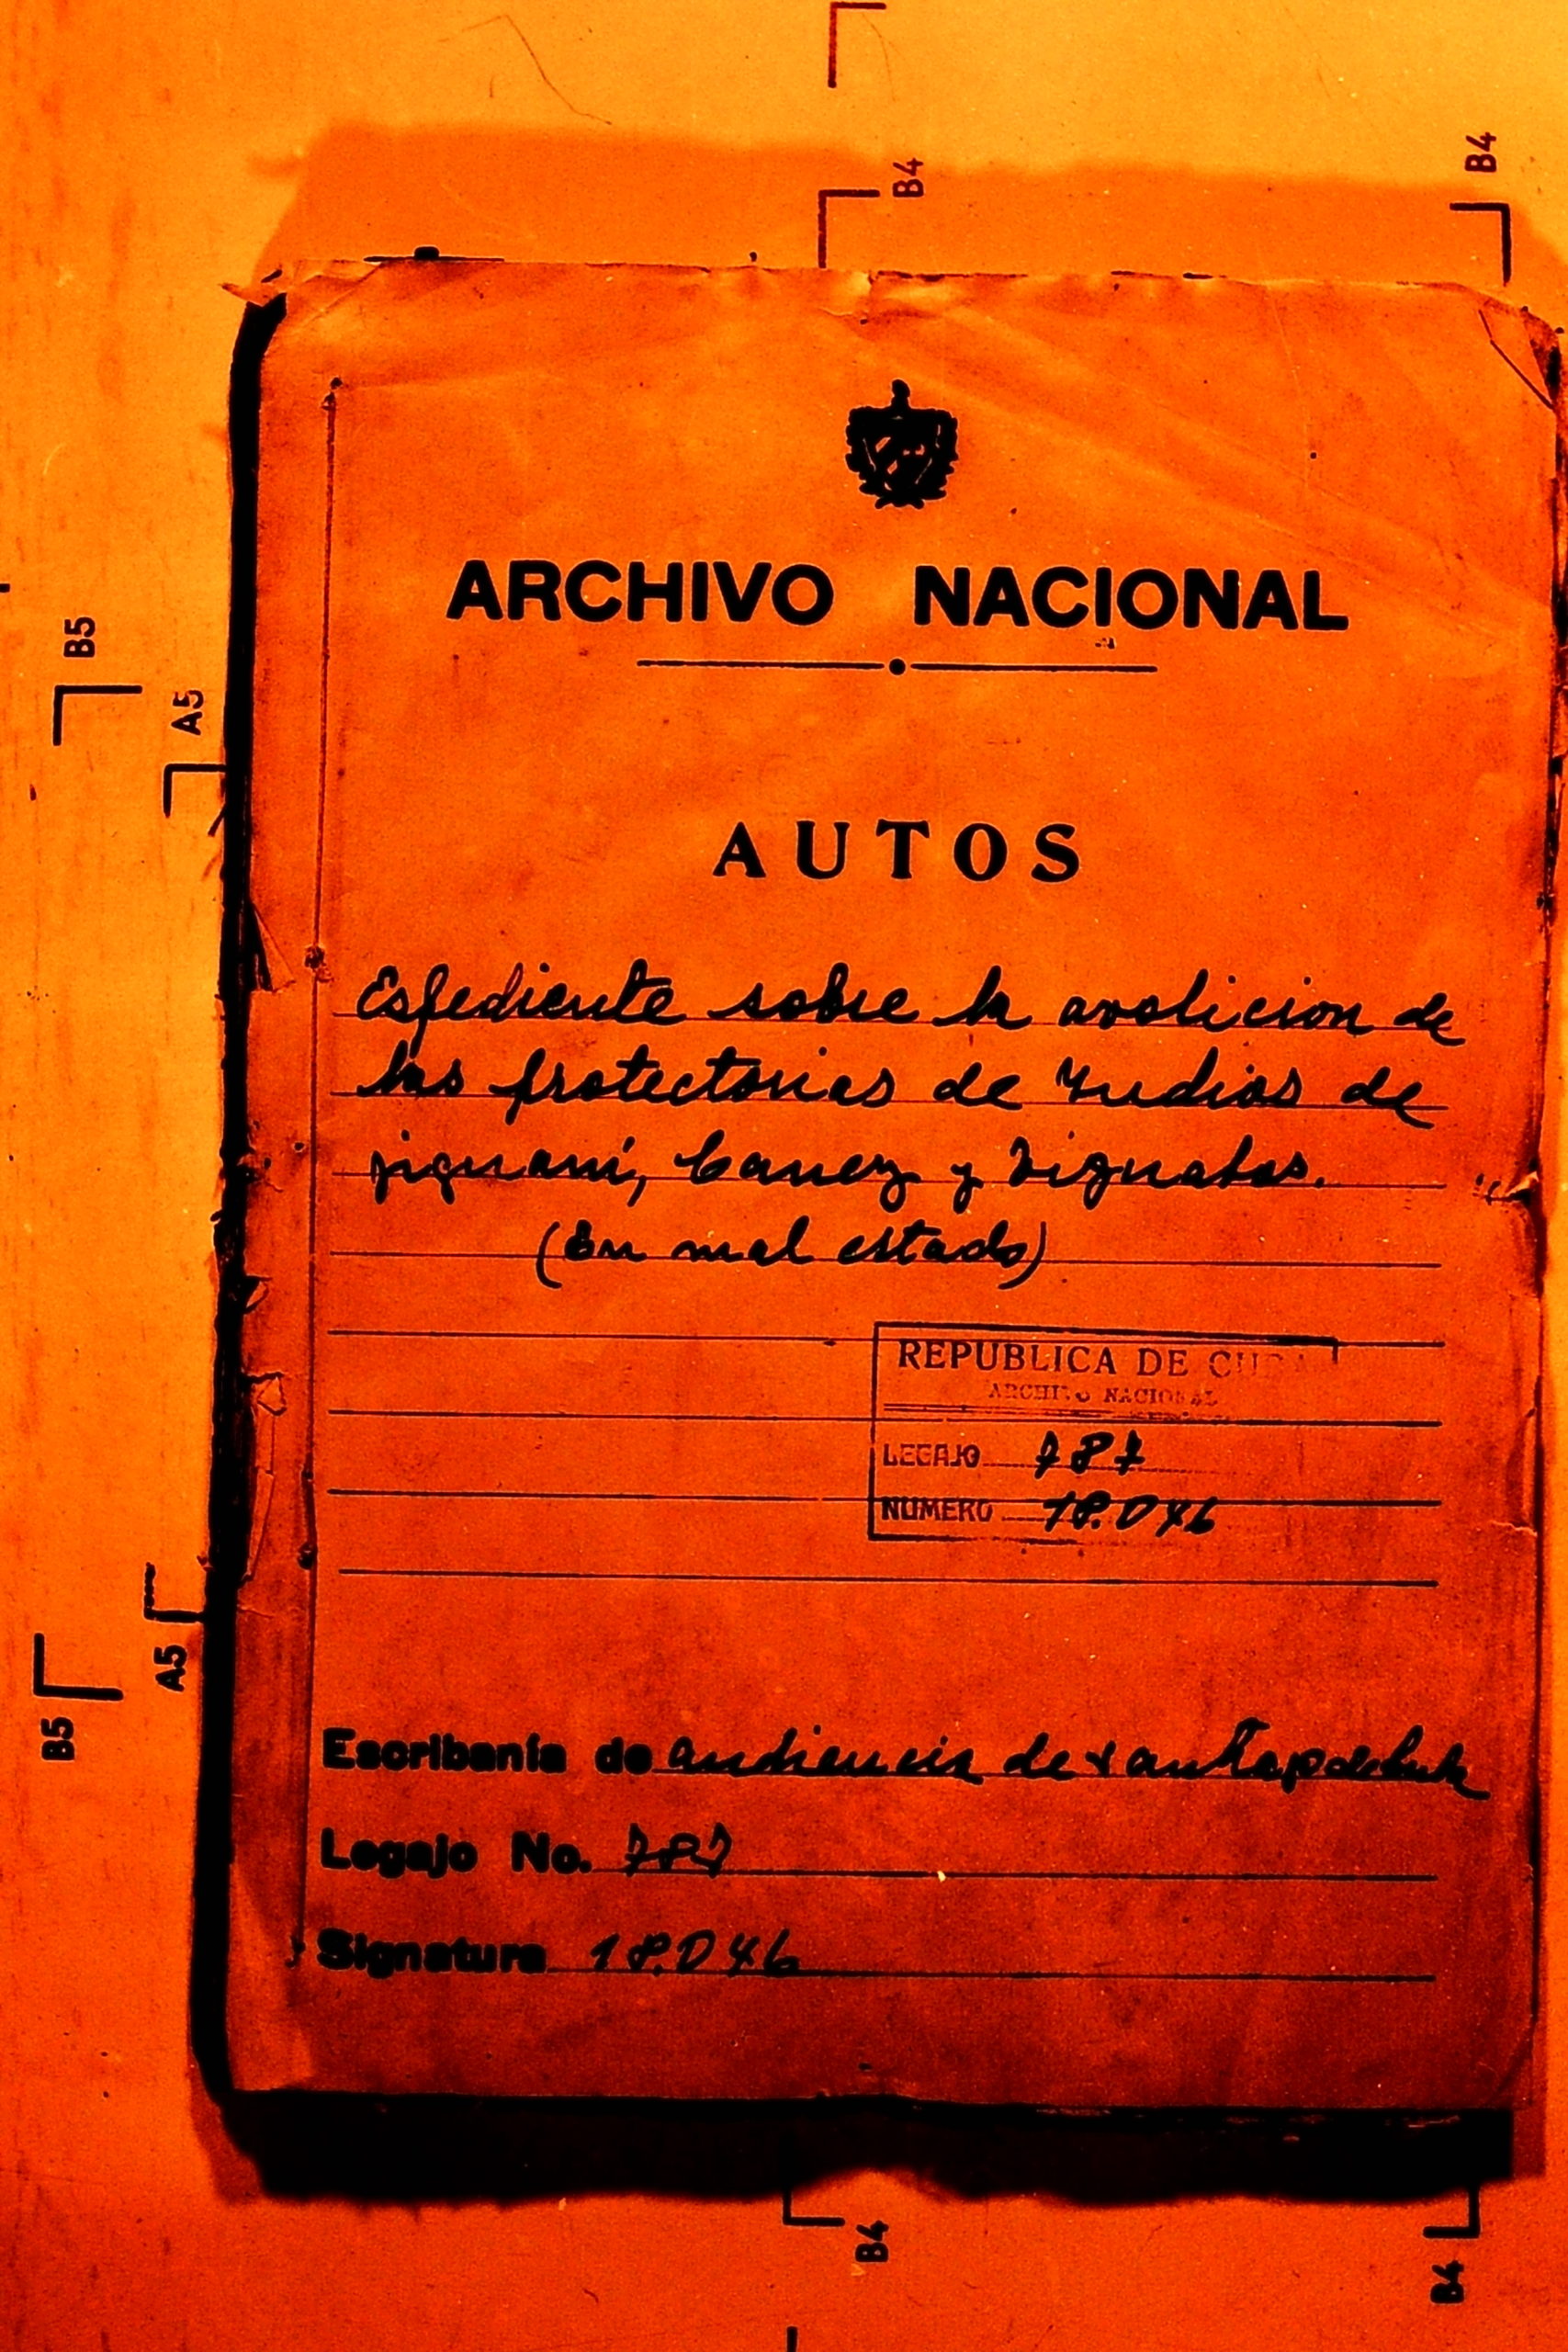 B4
B4
B5
A5
ARCHIVO NACIONAL
AUTOS
Espediente sobre la avolicion de
las protectorias de Yndios de
jiguaní, Caney y
(En mal estado)
REPUBLICA DE CUBA
ARCHIVO NACIONAL
LEGAJO 787
NUMERO 18.046
Escribanía de audiencia de
Legajo No. 787
Signatura 18.046
A5
B5
B4
B4